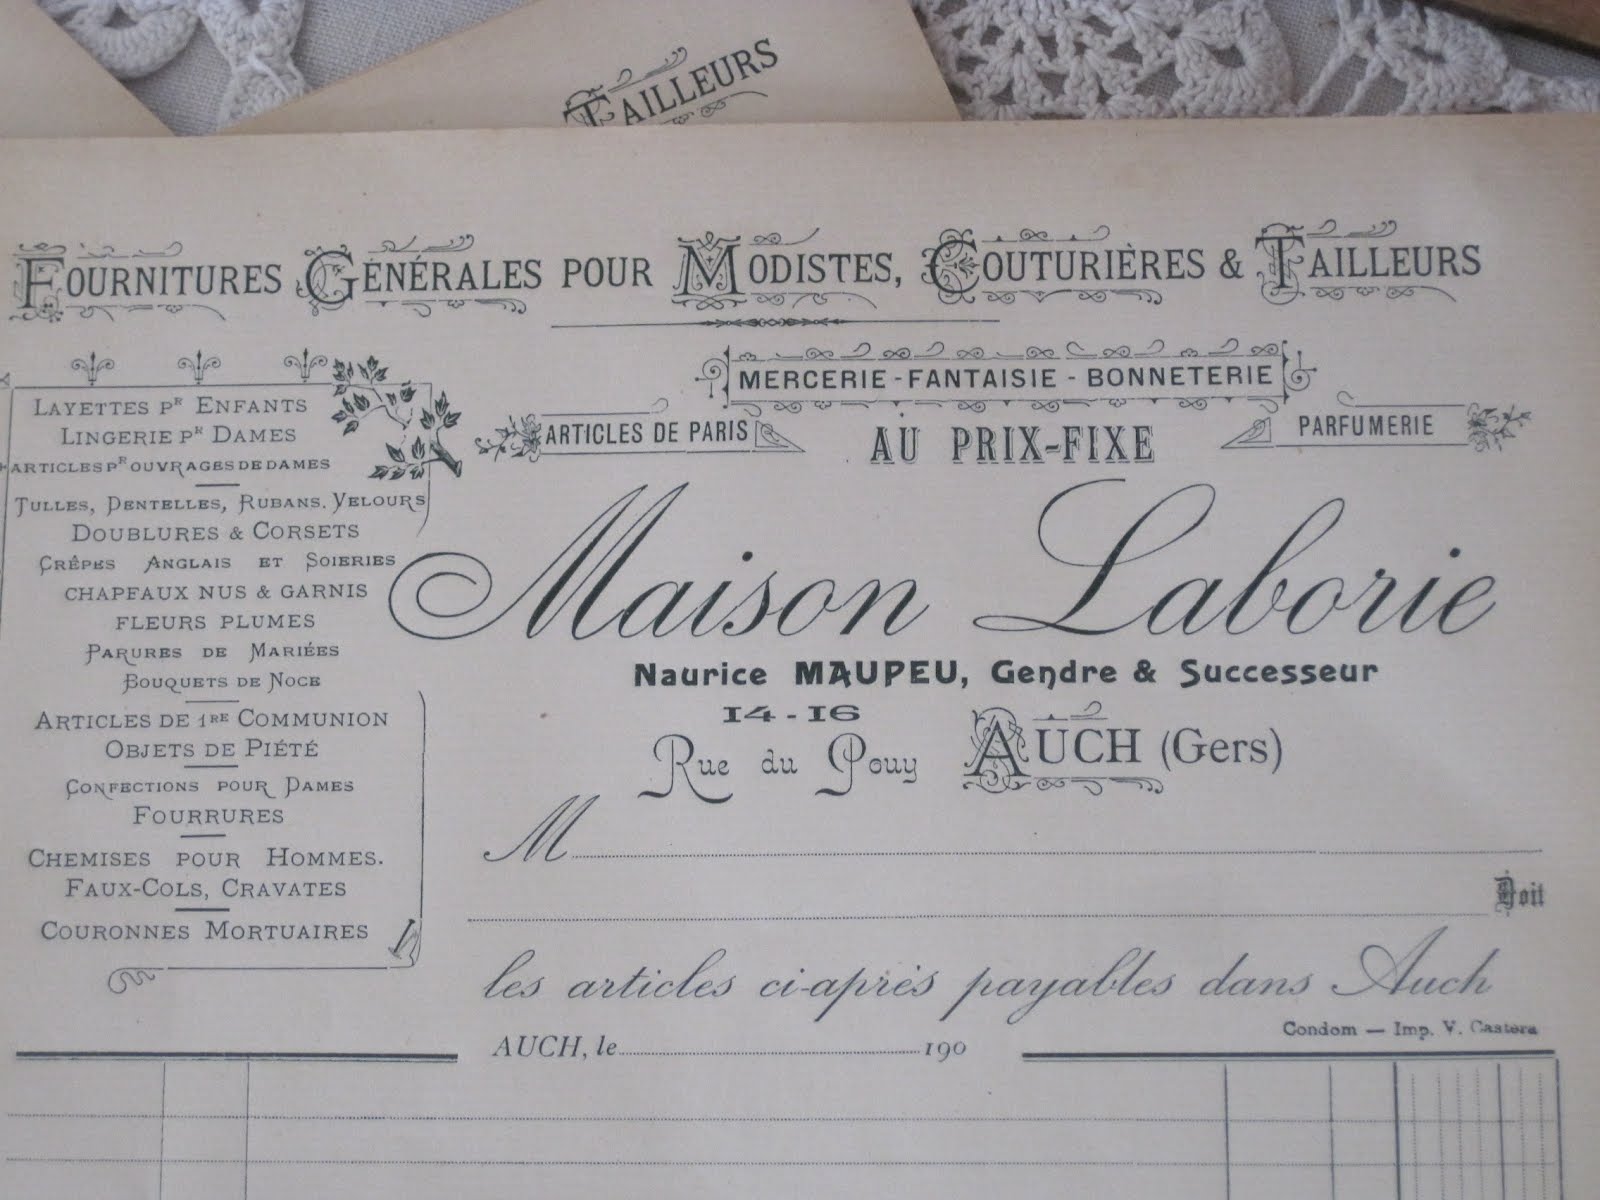 TAILLEURS
FOURNITURES GÉNÉRALES POUR MODISTES, COUTURIÈRES & TAILLEURS
MERCERIE - FANTAISIE - BONNETERIE
ARTICLES DE PARIS
AU PRIX-FIXE
PARFUMERIE
Maison Laborie
Naurice MAUPEU, Gendre & Successeur
14-16
Rue du Pouy AUCH (Gers)
LAYETTES PR ENFANTS
LINGERIE PR DAMES
ARTICLES PR OUVRAGES DE DAMES
TULLES, DENTELLES, RUBANS. VELOURS
DOUBLURES & CORSETS
CRÊPES ANGLAIS ET SOIERIES
CHAPEAUX NUS & GARNIS
FLEURS PLUMES
PARURES DE MARIÉES
BOUQUETS DE NOCE
ARTICLES DE 1RE COMMUNION
OBJETS DE PIÉTÉ
CONFECTIONS POUR DAMES
FOURRURES
CHEMISES POUR HOMMES.
FAUX-COLS, CRAVATES
COURONNES MORTUAIRES
M
Doit
les articles ci-après payables dans Auch
Condom — Imp. V. Castera
AUCH, le 190